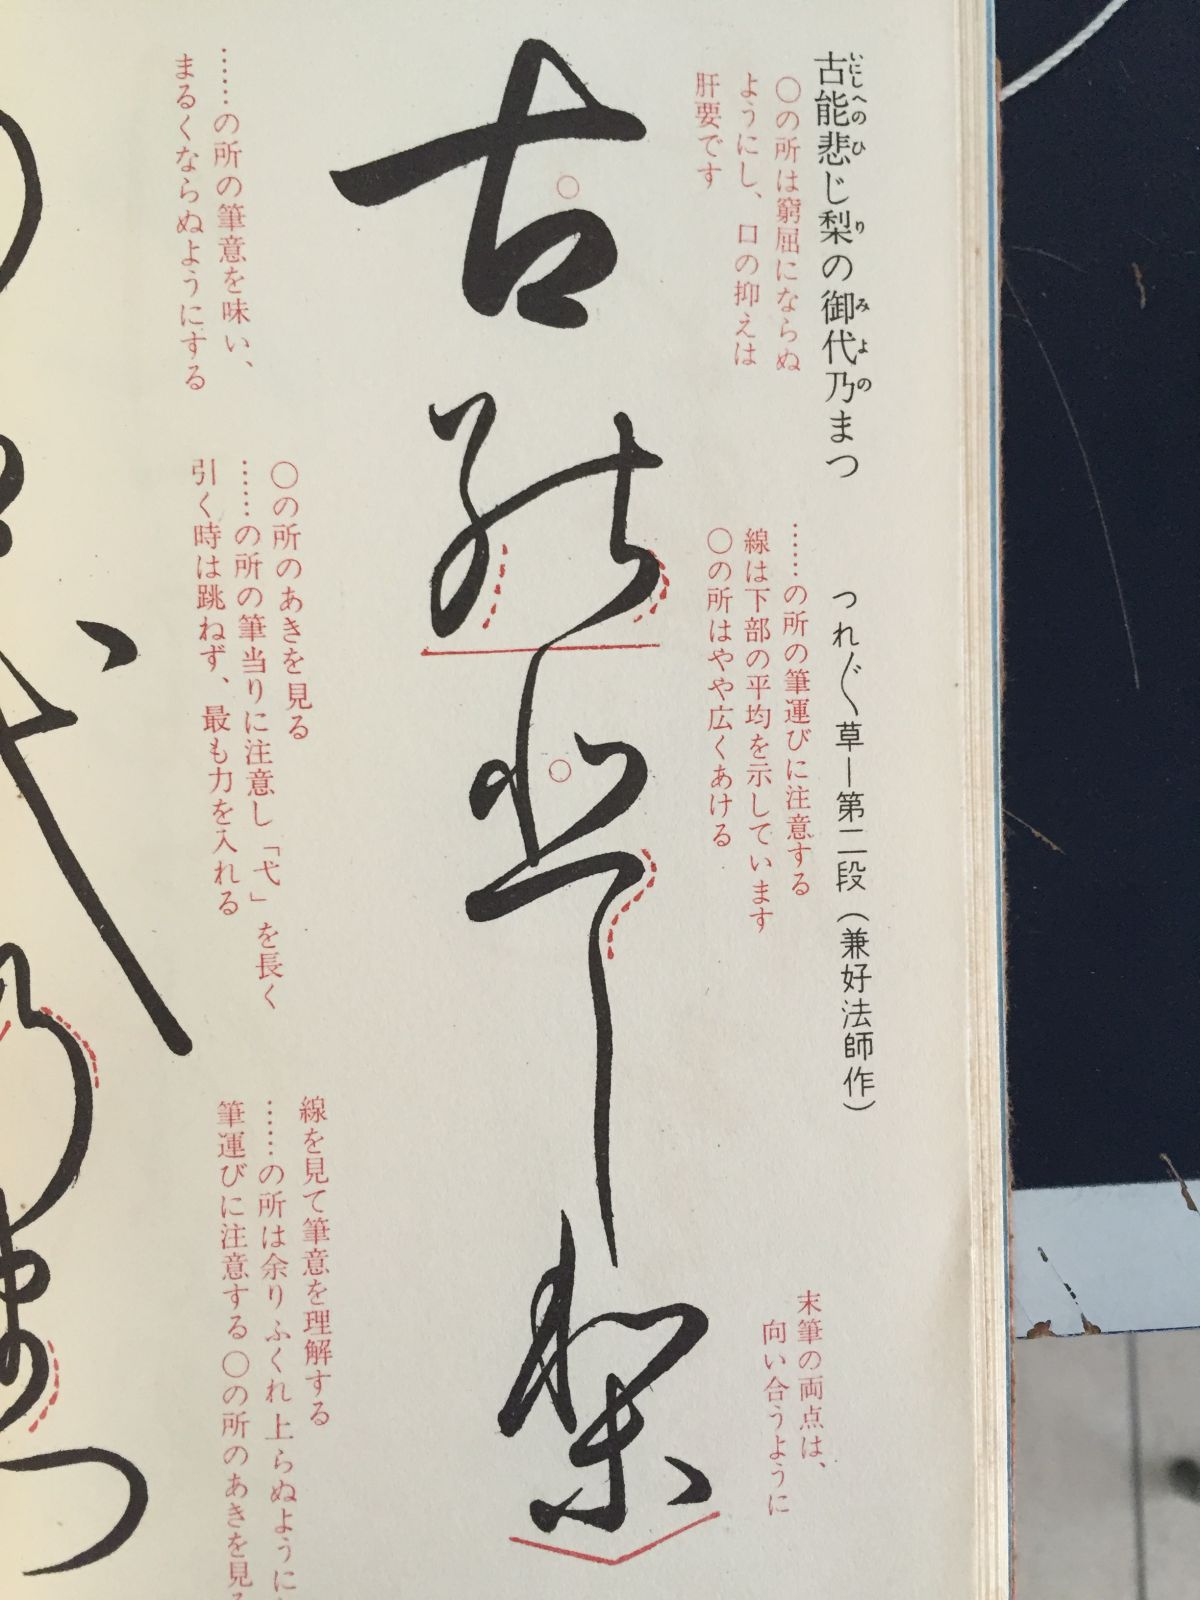 古能悲じ梨の御代乃まつ
いにしへのひ り みよの
つれ〴〵草―第二段(兼好法師作)
〇の所は窮屈にならぬ
ようにし、口の抑えは
肝要です
……の所の筆運びに注意する
線は下部の平均を示しています
〇の所はやや広くあける
末筆の両点は、
向い合うように
古能悲し梨
……の所の筆意を味い、
まるくならぬようにする
〇の所のあきを見る
……の所の筆当りに注意し「弋」を長く
引く時は跳ねず、最も力を入れる
線を見て筆意を理解する
……の所は余りふくれ上らぬように
筆運びに注意する〇の所のあきを見る
の御代乃まつ